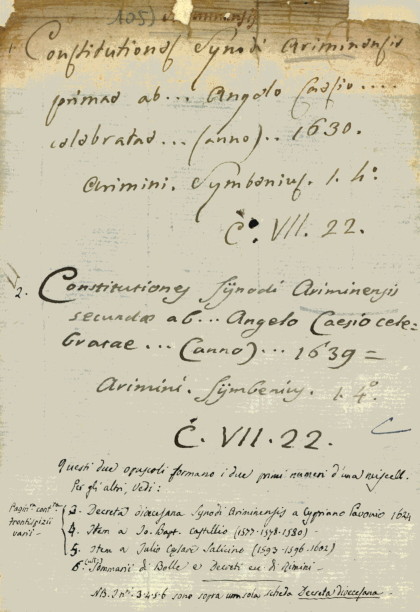 105) Ariminensis
1. Constitutiones Synodi Ariminensis
primae ab... Angelo Caesio ....
celebratae... (anno).. 1630.
Arimini. Symbenius. 1. 4º.
C. VII. 22.
2. Constitutiones Synodi Ariminensis
secundae ab... Angelo Caesio cele-
bratae... (anno)... 1639 =
Arimini. Symbenius. 1. 4º.
C. VII. 22.
Questi due opuscoli formano i due primi numeri d'una miscell.
Per gli altri, vedi:
frontespizii
varii -
3. Decreta diocesana Synodi Ariminensis a Cypriano Pavonio 1624
4. Item a Jo. Bapt. Castellio (1577-1578-1580)
5. Item a Julio Caesare Salicino (1593-1596-1602)
6. Sommarii di Bolle e Decreti ecc di Rimini -
NB. I nⁱ. 3.4.5.6 sono sopra una sola scheda Decreta dioecesana.